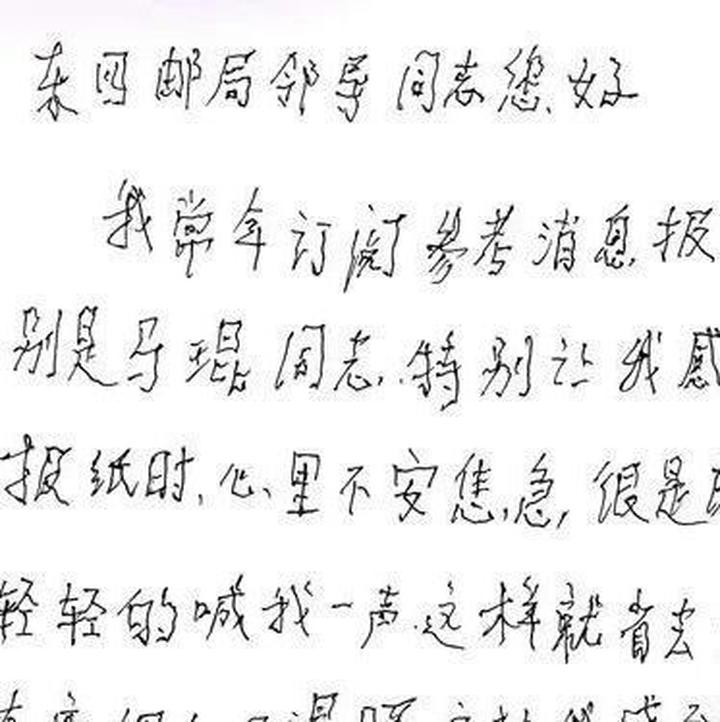 东 邮局领导同志您好
我常年订阅参考消息报
别是 琨同志.特别让我感
报纸时.心里不安焦急,很是
轻轻的喊我一声.这样就省去